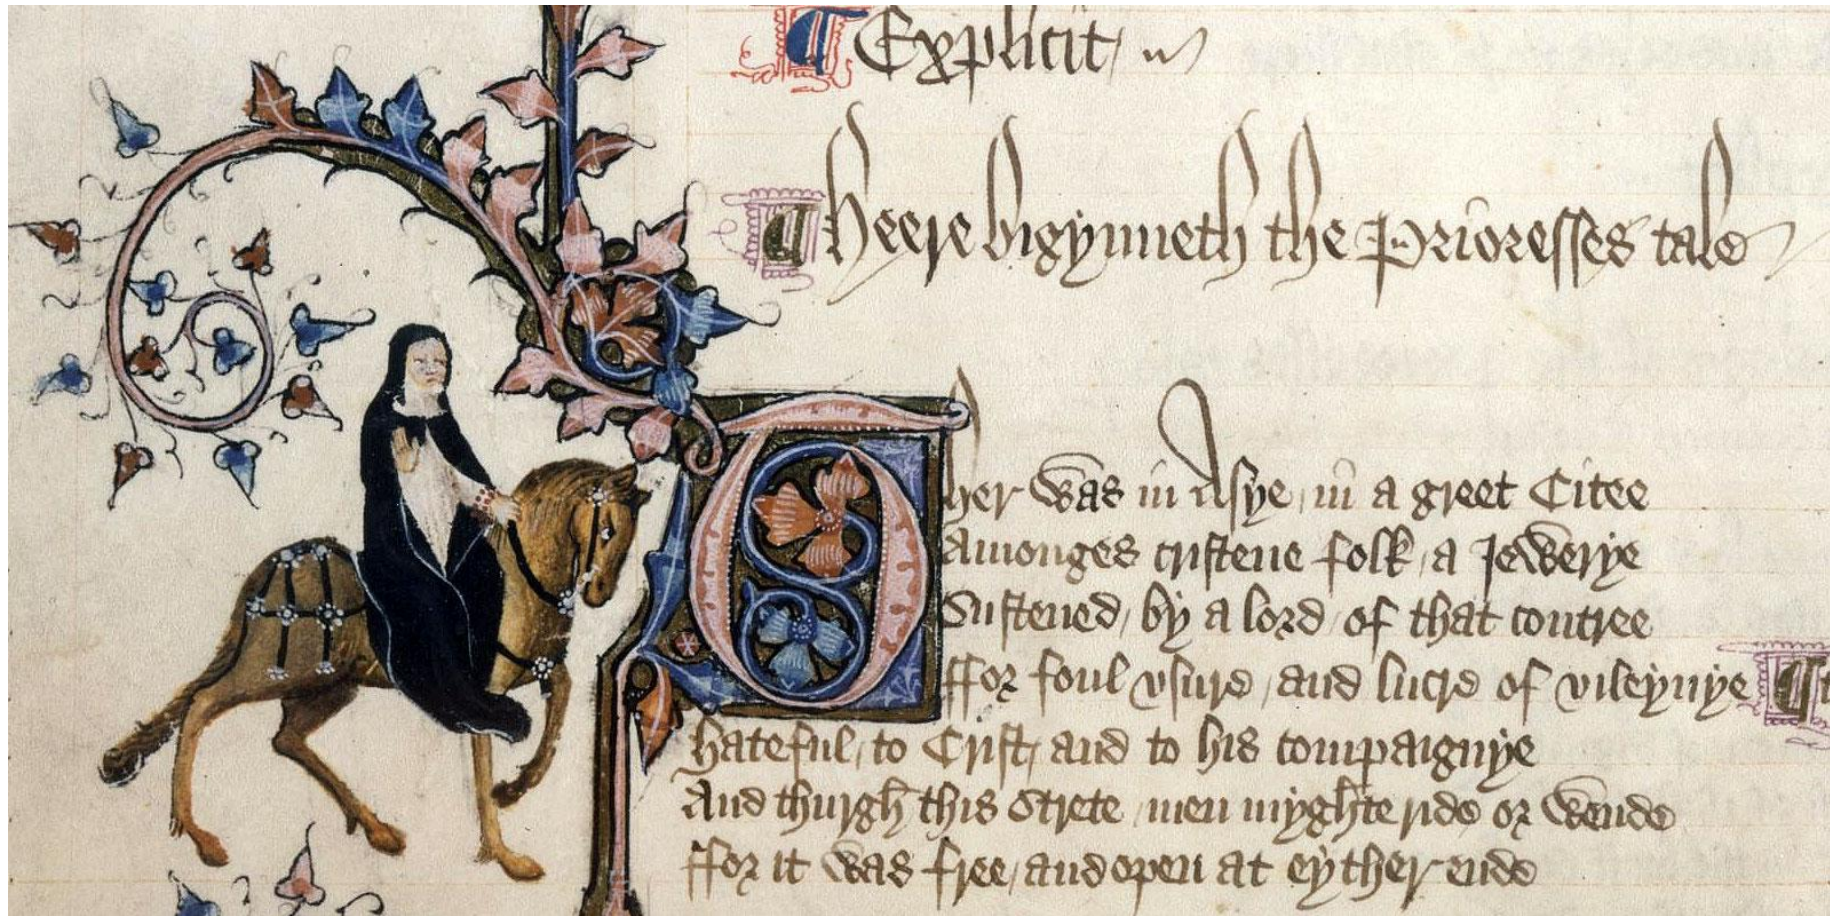 ¶ Explicit
¶ Heere bigynneth the Prioresses tale
Ther was in Asye in a greet Citee
Amonges cristene folk a Jewerye
Sustened by a lord of that contree
ffor foul vsure and lucre of vileynye
hateful to Crist and to his compaignye
And thurgh this Strete men myghte ride or wende
ffor it was free and open at eyther ende